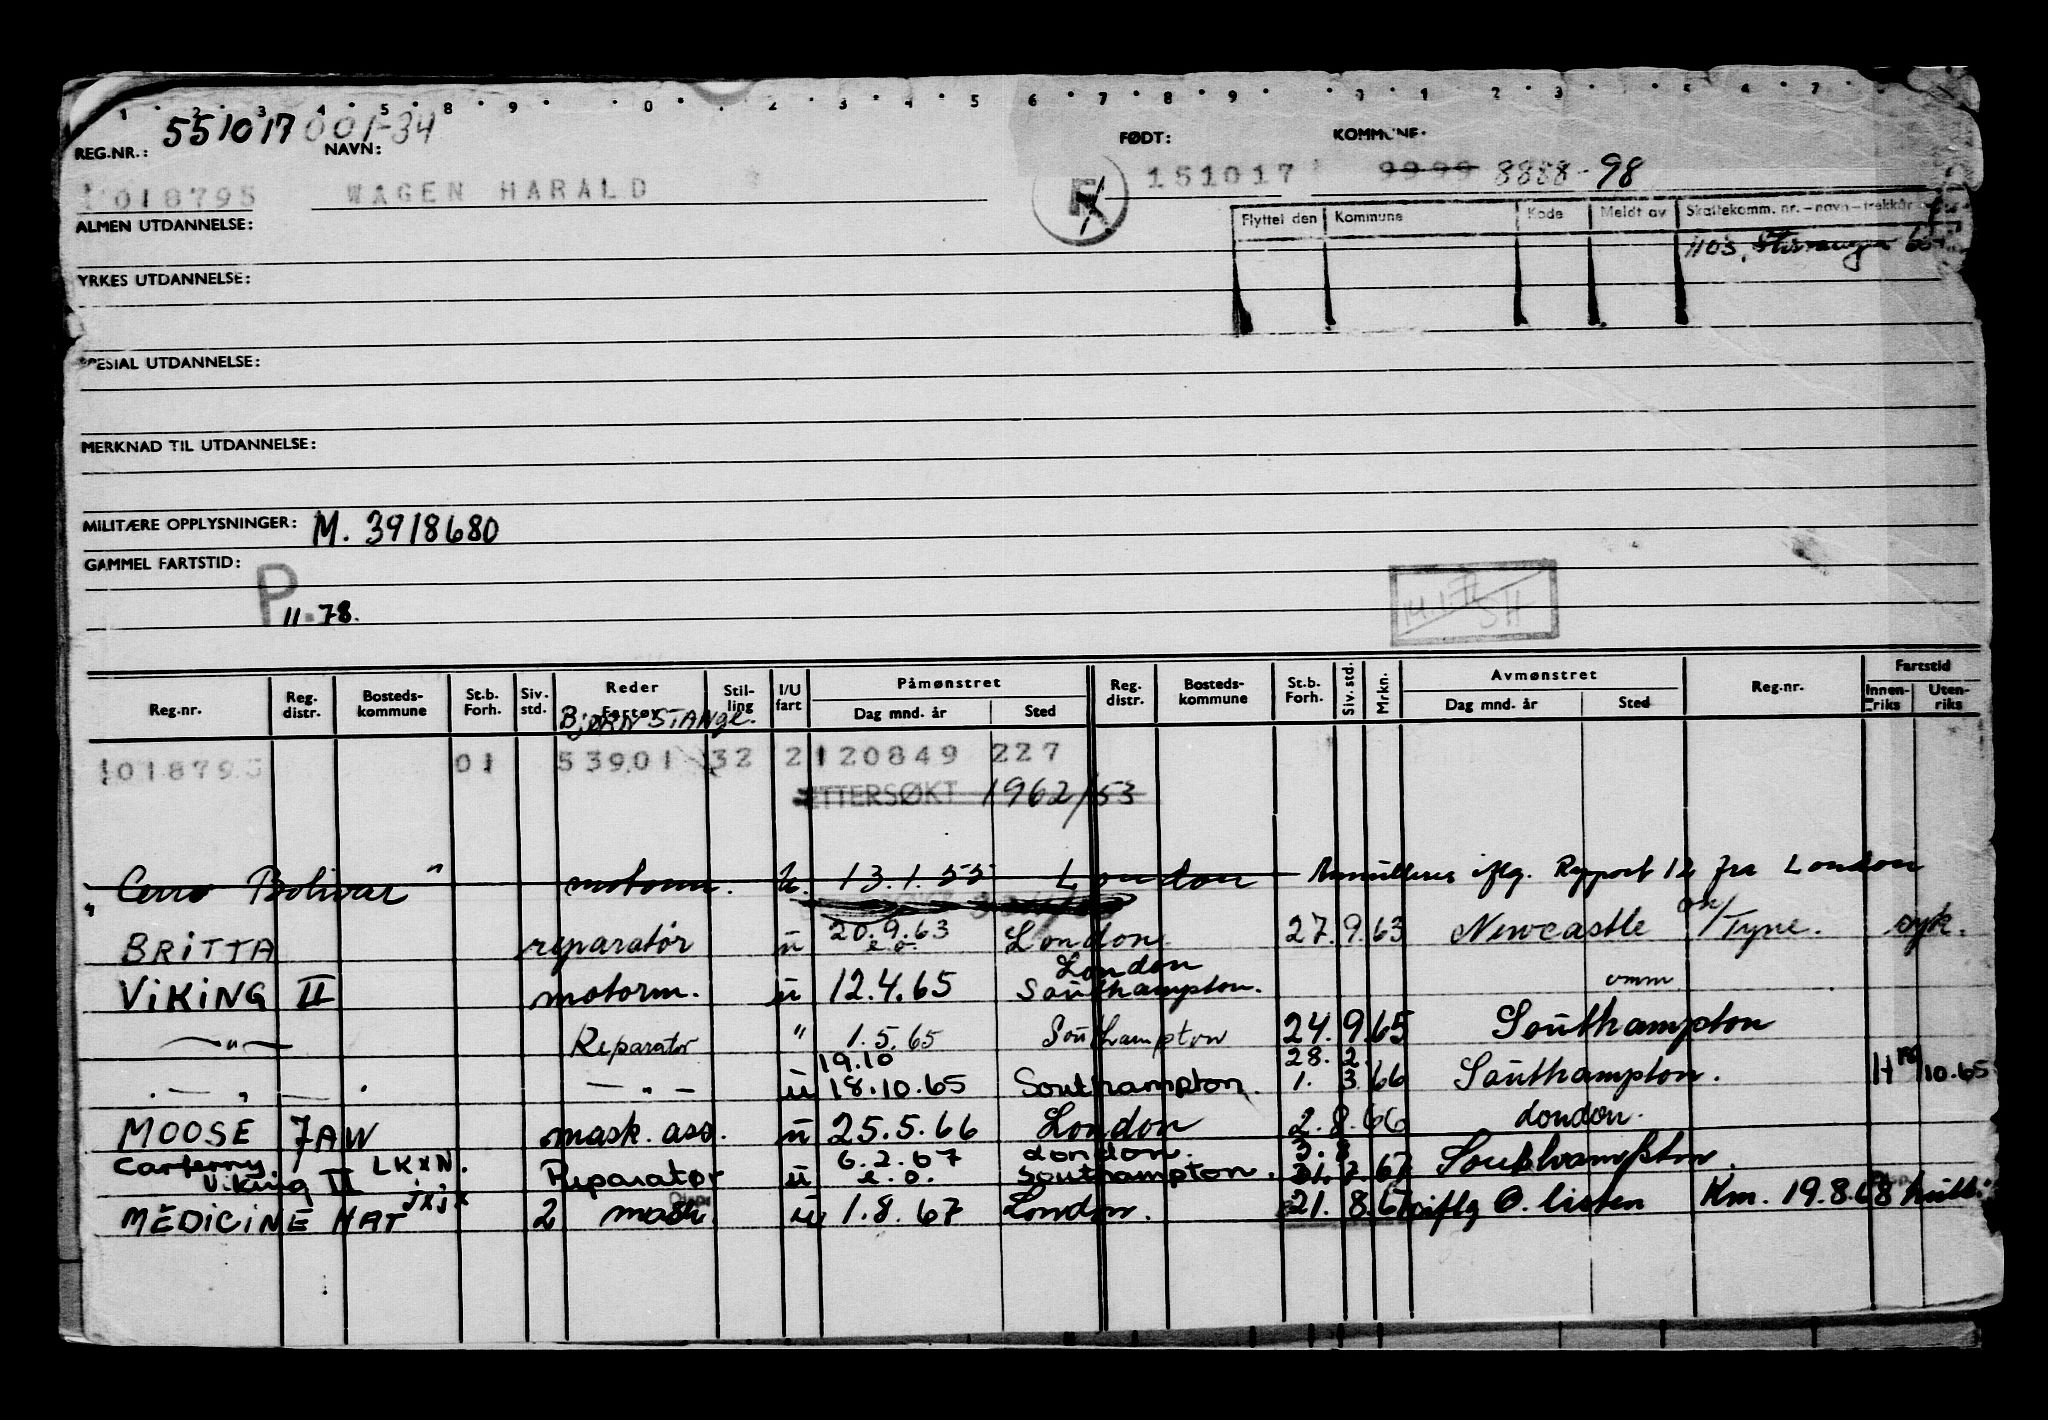 551017 001-34
REG.NR.: NAVN: FØDT: KOMMUNE:
1018795 WAGEN HARALD 151017 9999 8888-98
Flyttet den Kommune Kode Meldt av Skattekomm. nr. – navn – trekkår
1103, Stavanger
ALMEN UTDANNELSE:
YRKES UTDANNELSE:
SPESIAL UTDANNELSE:
MERKNAD TIL UTDANNELSE:
MILITÆRE OPPLYSNINGER: M. 3918680
GAMMEL FARTSTID:
P. 11-78.
Reg.nr. Reg. distr. Bosteds-kommune St.b. Forh. Siv. std. Reder Fartøy Stil-ling I/U fart Påmønstret Dag mnd. år Sted Reg. distr. Bosteds-kommune St.b. Forh. Siv. std. Mrkn. Avmønstret Dag mnd. år Sted Reg.nr. Fartstid Innen-riks Uten-riks
BJØRN STANGE.
1018795 01 53901 32 2 120849 227
ETTERSØKT 1962/53
" Cerro Bolivar " motorm. U. 13.1.55 London Annulleres iflg. Rapport 12 fra London
BRITTA reparatør u 20.9.63 e.o. London 27.9.63 Newcastle on/Tyne. syk.
London
VIKING II motorm. u 12.4.65 Southampton. omm
— " — Reparatør " 1.5.65 Southampton 24.9.65 Southampton
19.10 28.2.
— " — — " — u 18.10.65 Southampton. 1.3.66 Southampton. 10.65
MOOSE JAW mask. ass. u 25.5.66 London 2.8.66 London.
6.2.67 London. 3.8
Carferry. Viking II LKXN. Reparatør u e.o. Southampton. 31.7.67 Southampton.
MEDICINE HAT JXJX 2 mask. u 1.8.67 London. 21.8.67 iflg O. listen Km. 19.8.68